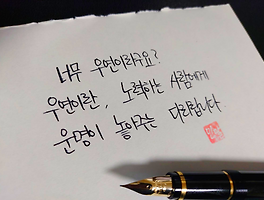 너무 우연이라구요?
우연이란, 노력하는 사람에게
운명이 놓아주는 다리랍니다.